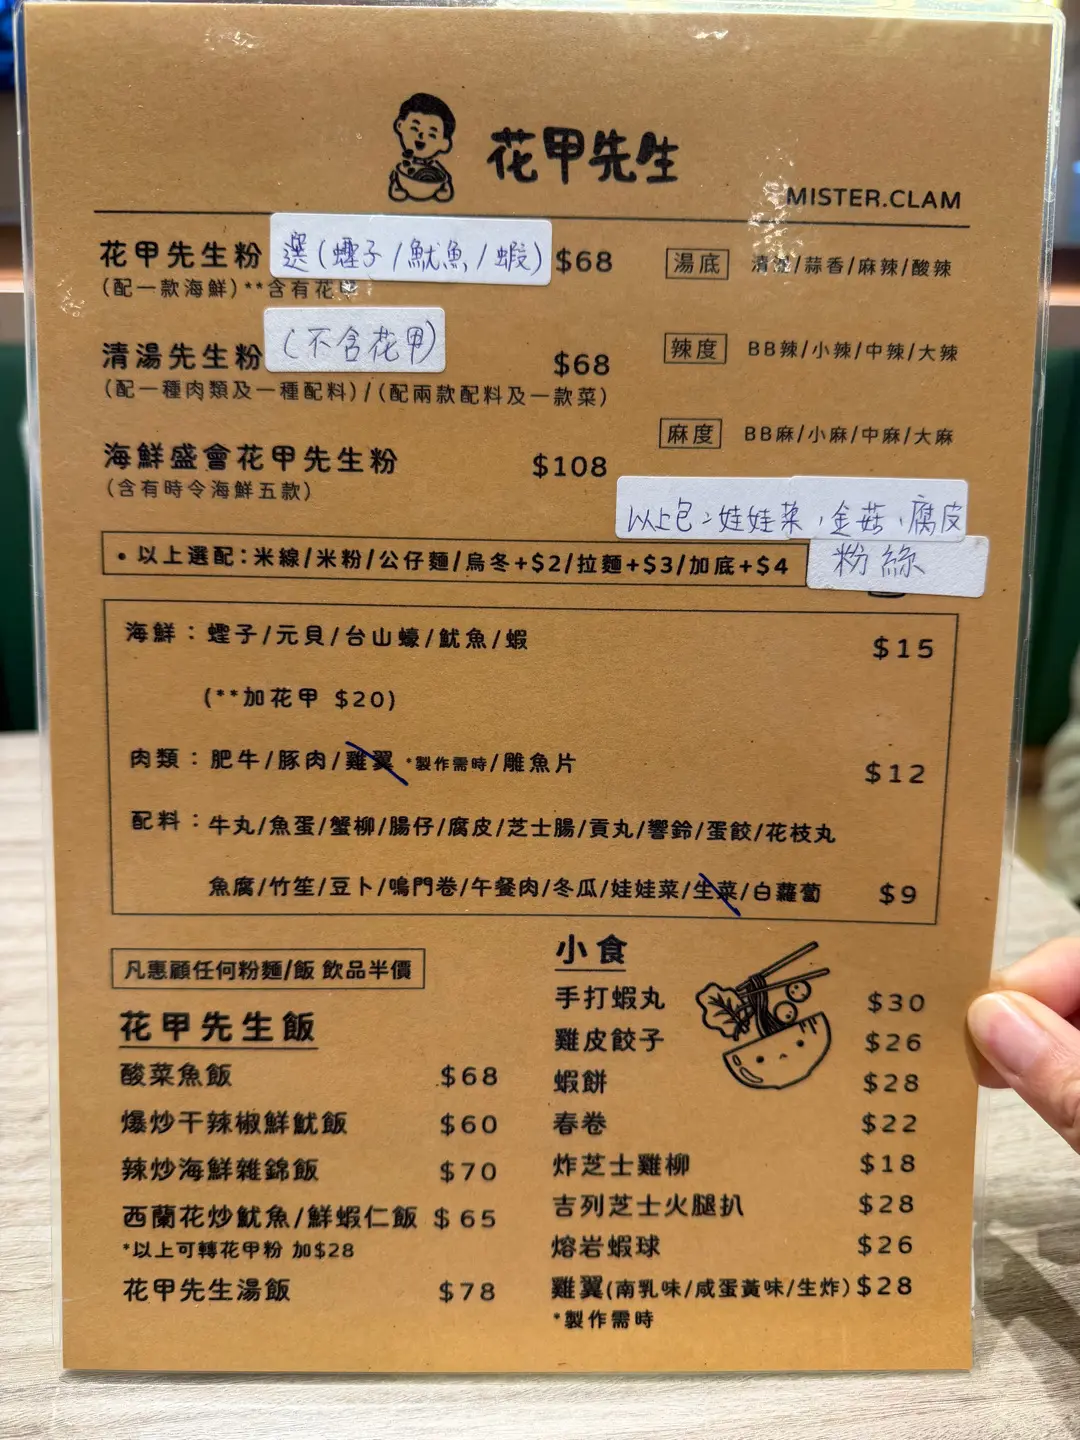 花甲先生
MISTER.CLAM
花甲先生粉 選(蟶子/魷魚/蝦) $68
(配一款海鮮)**含有花甲
清湯先生粉 (不含花甲) $68
(配一種肉類及一種配料)/(配兩款配料及一款菜)
海鮮盛會花甲先生粉 $108
(含有時令海鮮五款)
湯底 清湯/蒜香/麻辣/酸辣
辣度 BB辣/小辣/中辣/大辣
麻度 BB麻/小麻/中麻/大麻
以上包:娃娃菜、金菇、腐皮
粉絲
•以上選配:米線/米粉/公仔麵/烏冬+$2/拉麵+$3/加底+$4
海鮮:蟶子/元貝/台山蠔/魷魚/蝦 $15
(**加花甲 $20)
肉類:肥牛/豚肉/雞翼 *製作需時/雕魚片 $12
配料:牛丸/魚蛋/蟹柳/腸仔/腐皮/芝士腸/貢丸/響鈴/蛋餃/花枝丸
魚腐/竹笙/豆卜/鳴門卷/午餐肉/冬瓜/娃娃菜/生菜/白蘿蔔 $9
凡惠顧任何粉麵/飯 飲品半價
花甲先生飯
酸菜魚飯 $68
爆炒干辣椒鮮魷飯 $60
辣炒海鮮雜錦飯 $70
西蘭花炒魷魚/鮮蝦仁飯 $65
*以上可轉花甲粉 加$28
花甲先生湯飯 $78
小食
手打蝦丸 $30
雞皮餃子 $26
蝦餅 $28
春卷 $22
炸芝士雞柳 $18
吉列芝士火腿扒 $28
熔岩蝦球 $26
雞翼(南乳味/咸蛋黃味/生炸) $28
*製作需時